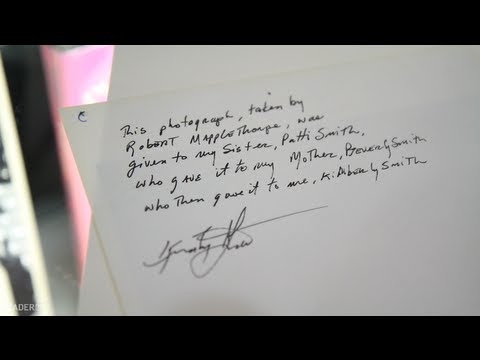 This photograph, taken by
Robert Mapplethorpe, was
given to my sister, Patti Smith,
who gave it to my Mother, Beverly Smith
who then gave it to me, Kimberly Smith